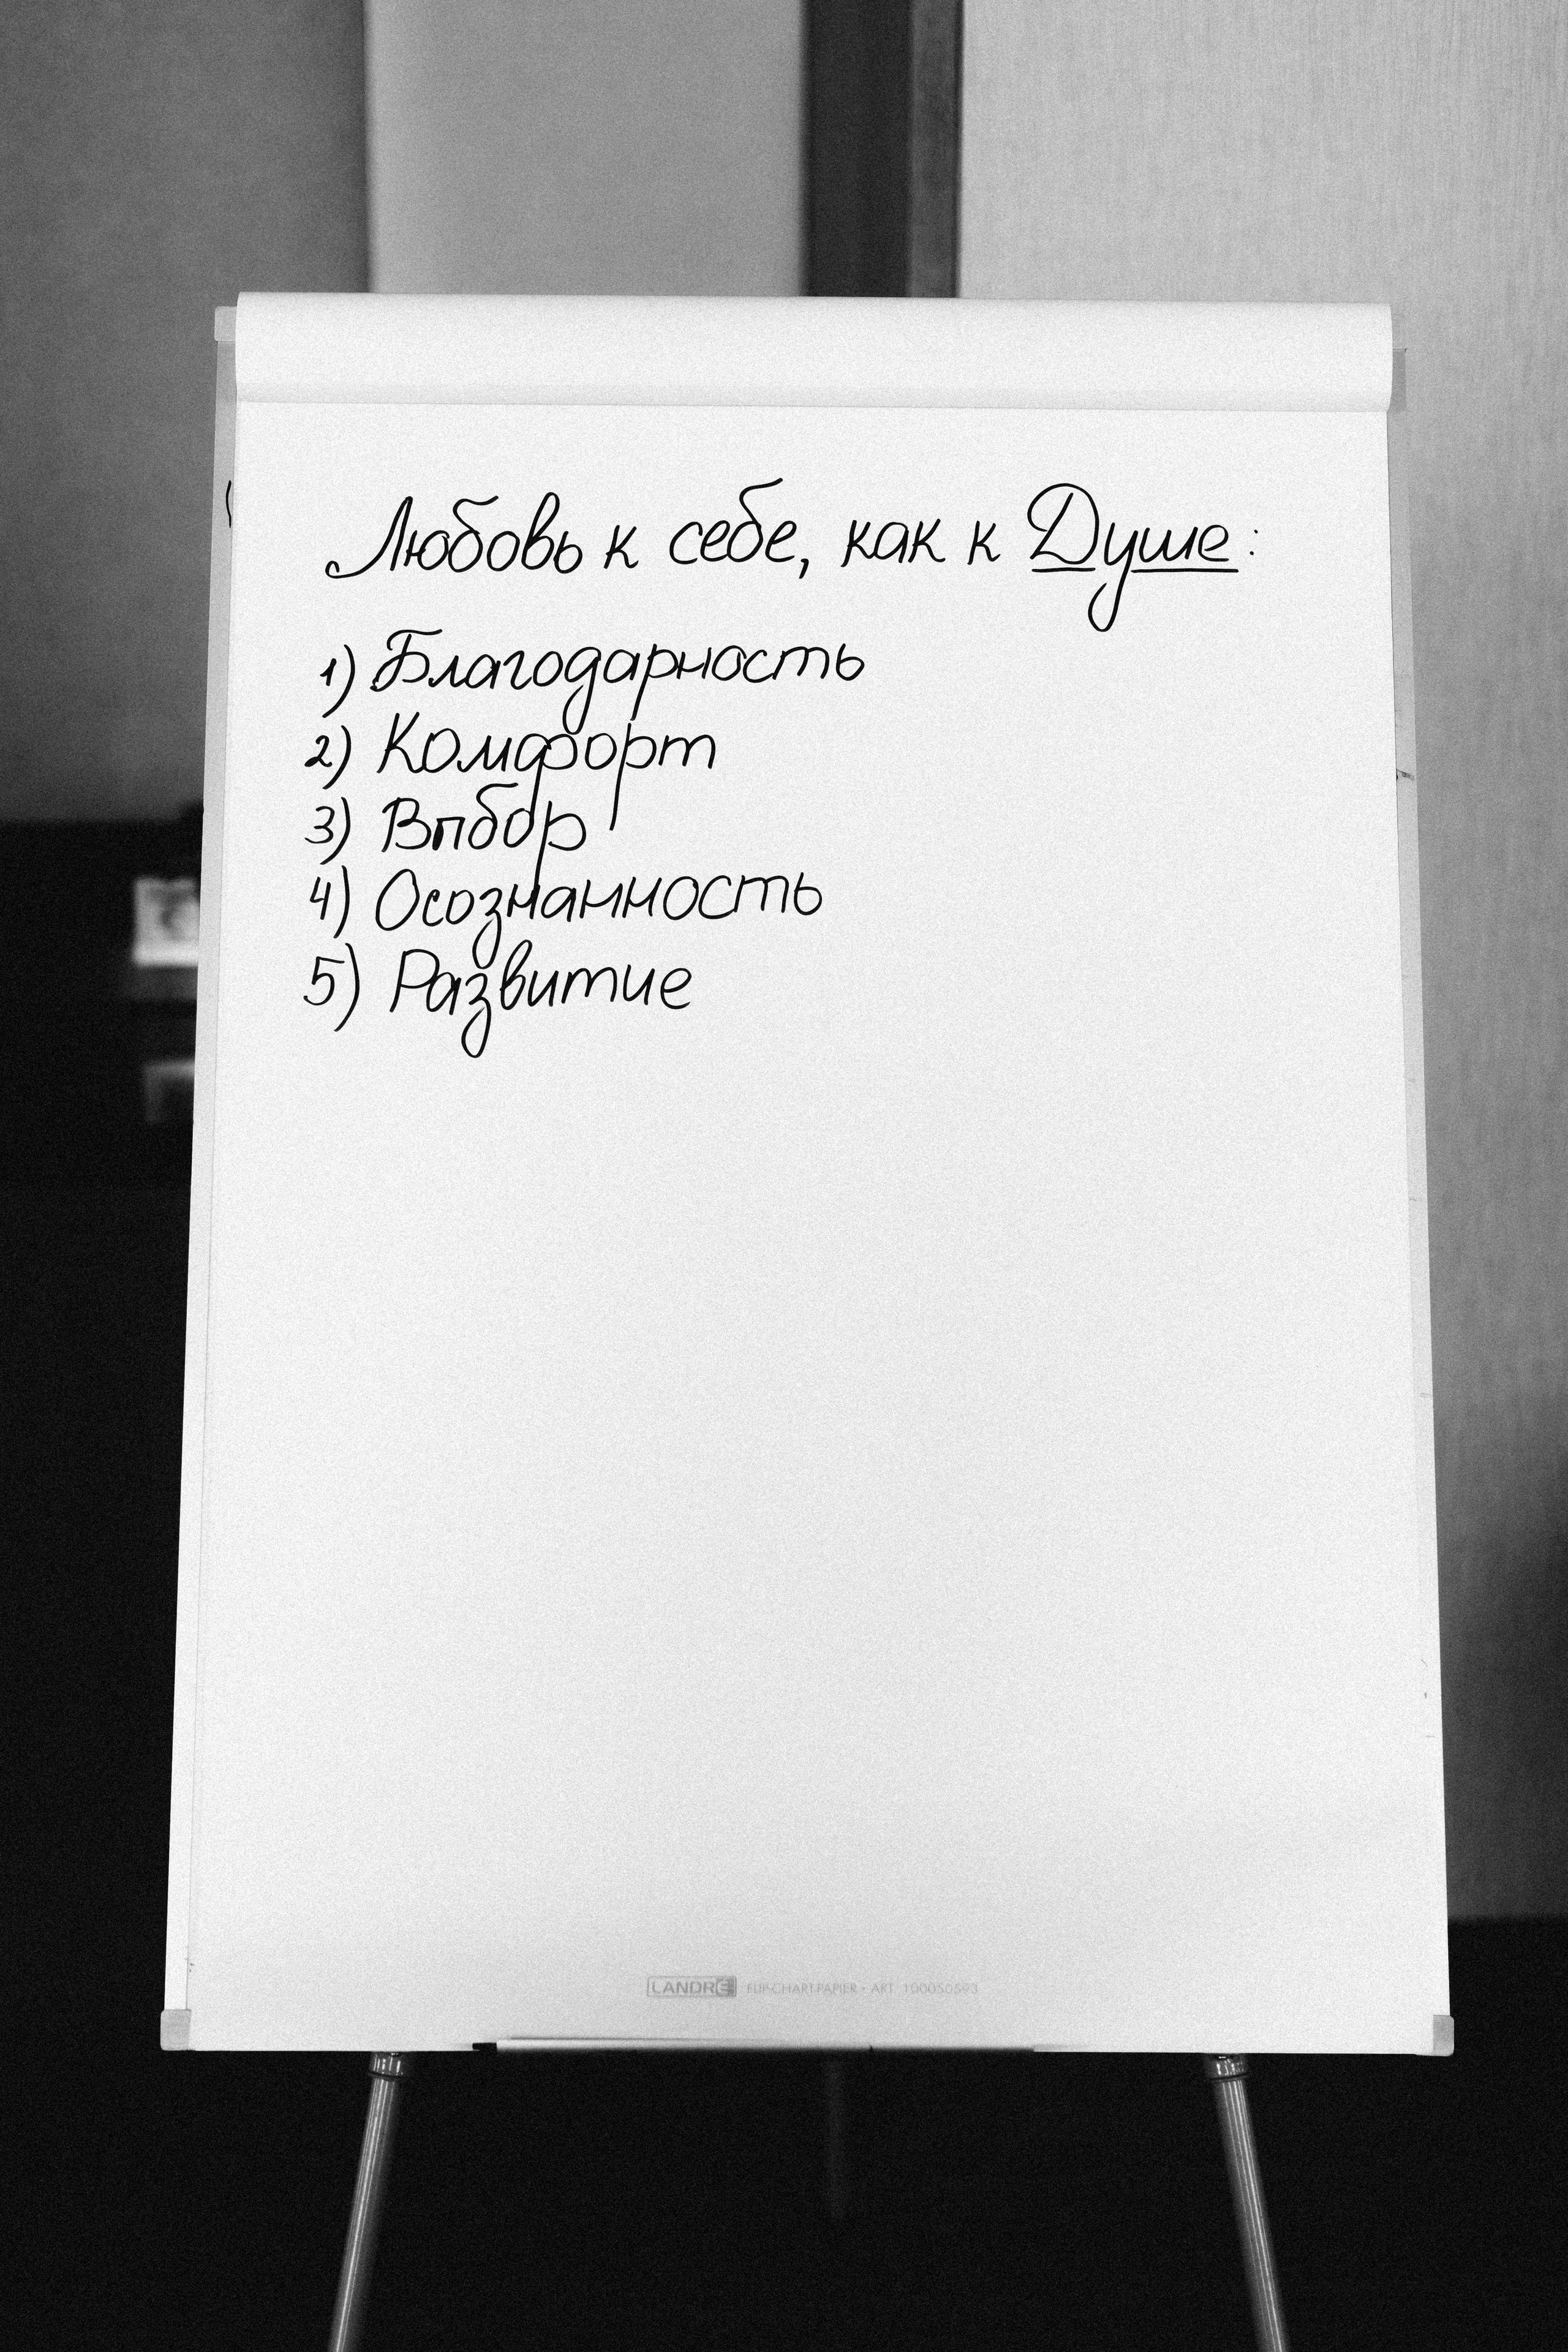 Любовь к себе, как к Душе:
1) Благодарность
2) Комфорт
3) Впбор
4) Осознанность
5) Развитие
LANDRÉ FLIP-CHART-PAPIER • ART. 100050593